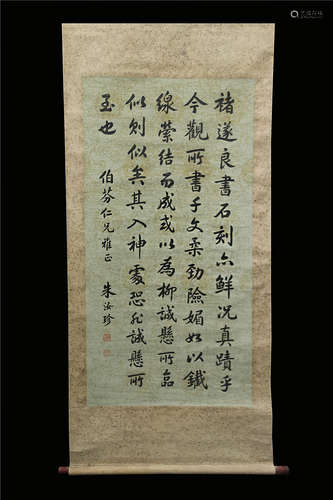 褚遂良書石刻亦鮮況真蹟乎
今觀所書千文柔勁險媚如以鐵
線縈結而成或以為柳誠懸所寫
似則似矣其入神處恐非誠懸所
至也
伯芬仁兄雅正
朱汝珍